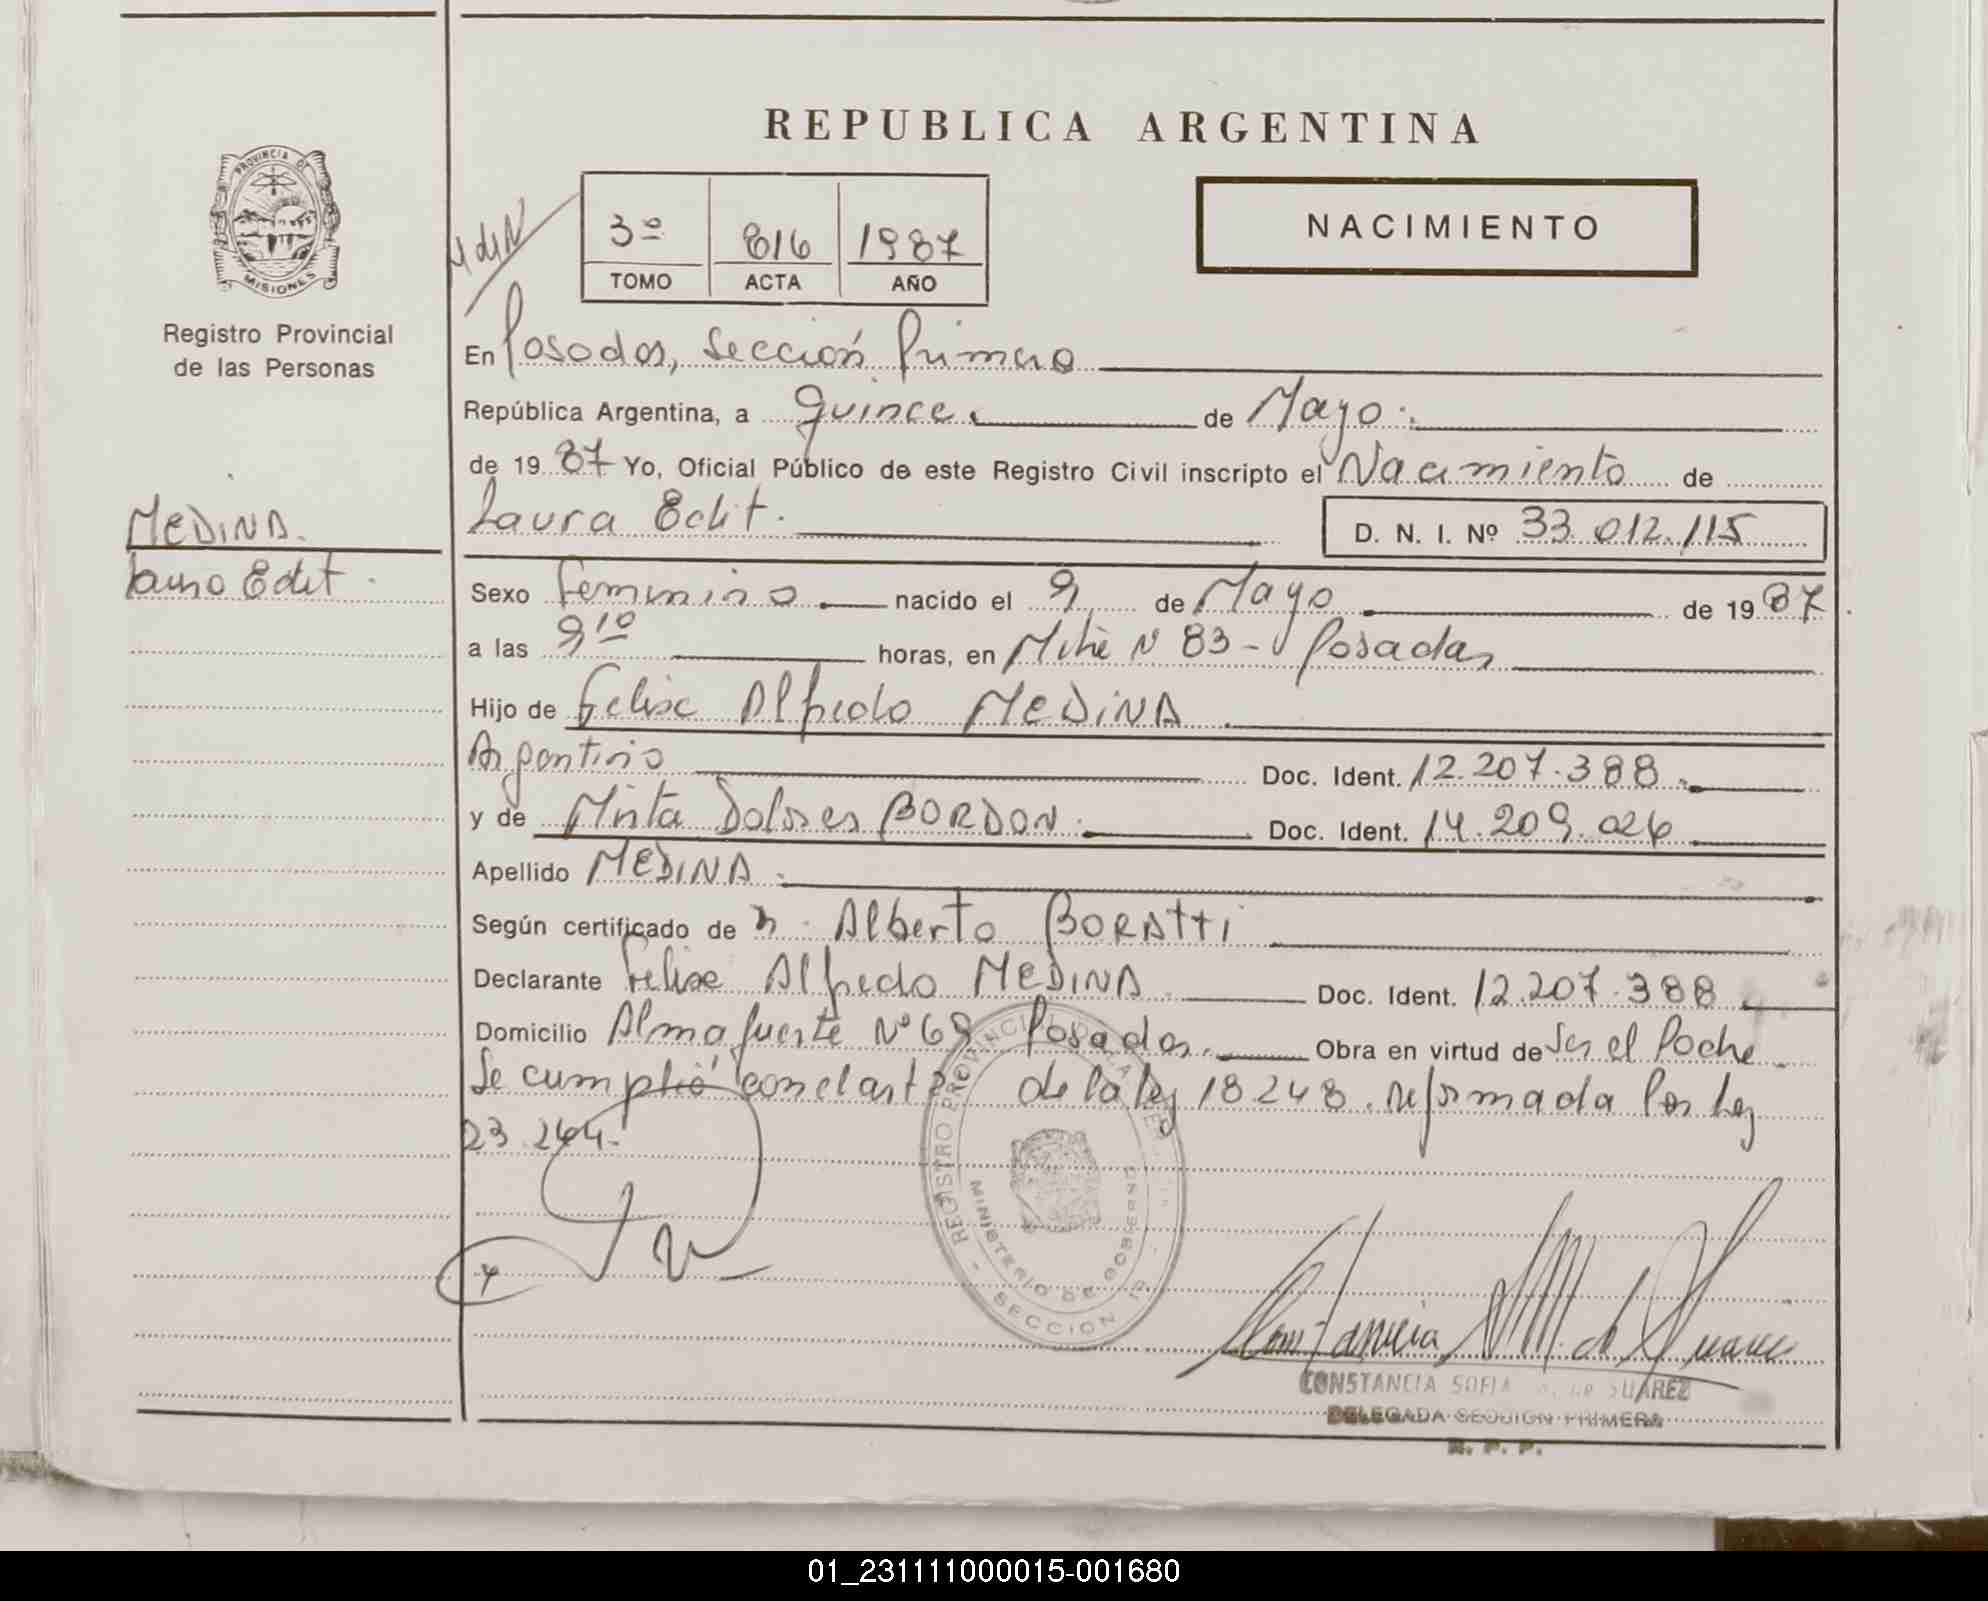 REPUBLICA ARGENTINA
PROVINCIA DE
MISIONES
Registro Provincial
de las Personas
3º 816 1987
TOMO ACTA AÑO
NACIMIENTO
En Posadas, Sección Primera
República Argentina, a quince de Mayo
de 1987 Yo, Oficial Público de este Registro Civil inscripto el Nacimiento de
Laura Edit. D. N. I. Nº 33.012.115
MEDINA.
Laura Edit.
Sexo Femenino nacido el 9 de Mayo de 1987
a las 9 10 horas, en Mitre N 83 - Posadas
Hijo de Felix Alfredo MEDINA
Argentino Doc. Ident. 12.207.388
y de Mirta Dolores BORDON. Doc. Ident. 14.209.026
Apellido MEDINA
Según certificado de Alberto BORATTI
Declarante Felix Alfredo MEDINA Doc. Ident. 12.207.388
Domicilio Almafuerte Nº 69 Posadas. Obra en virtud de Ser el Padre
Se cumplió con el art 2 de la ley 18248. reformada Por Ley
23.264.
REGISTRO PROVINCIAL DE LAS PERSONAS
MINISTERIO DE GOBIERNO
- SECCION 1ª -
CONSTANCIA SOFIA DE SUAREZ
DELEGADA SECCION PRIMERA
R. P. P.
01_231111000015-001680